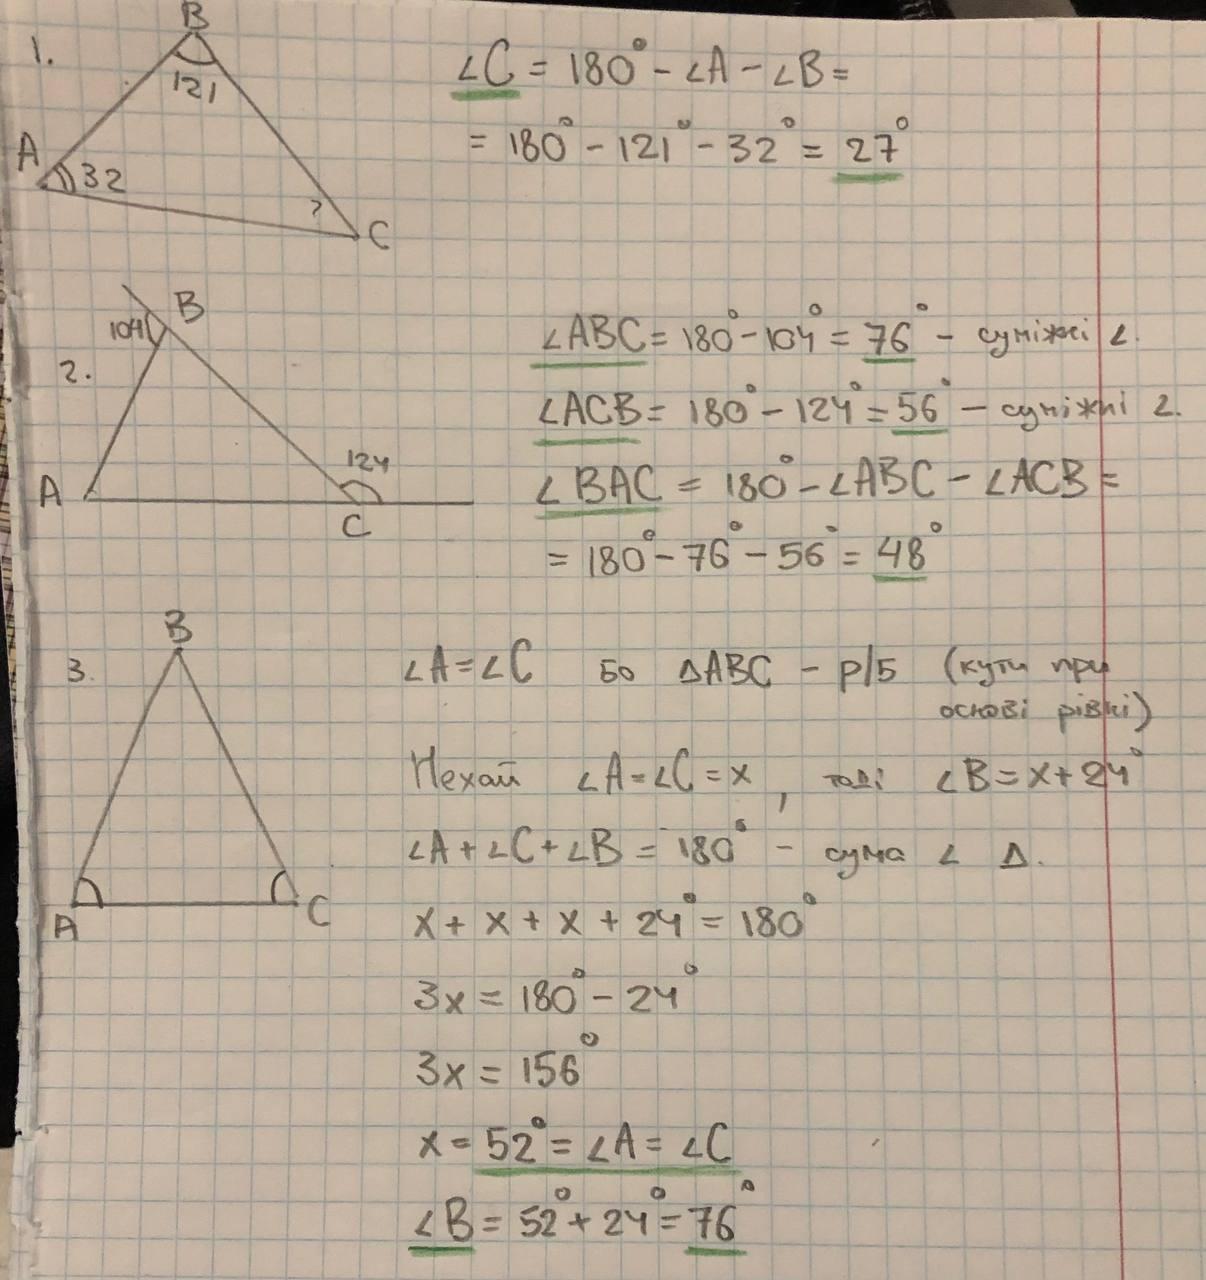 1.
B
121
A
32
?
C
∠C = 180° - ∠A - ∠B =
= 180° - 121° - 32° = 27°
2.
104
B
124
A
C
∠ABC = 180° - 104° = 76° - суміжні ∠.
∠ACB = 180° - 124° = 56° - суміжні ∠.
∠BAC = 180° - ∠ABC - ∠ACB =
= 180° - 76° - 56° = 48°
3.
B
A
C
∠A = ∠C бо ΔABC - р/б (кути при
основі рівні)
Нехай ∠A = ∠C = x, тоді ∠B = x + 24°
∠A + ∠C + ∠B = 180° - сума ∠ Δ.
x + x + x + 24° = 180°
3x = 180° - 24°
3x = 156°
x = 52° = ∠A = ∠C
∠B = 52° + 24° = 76°